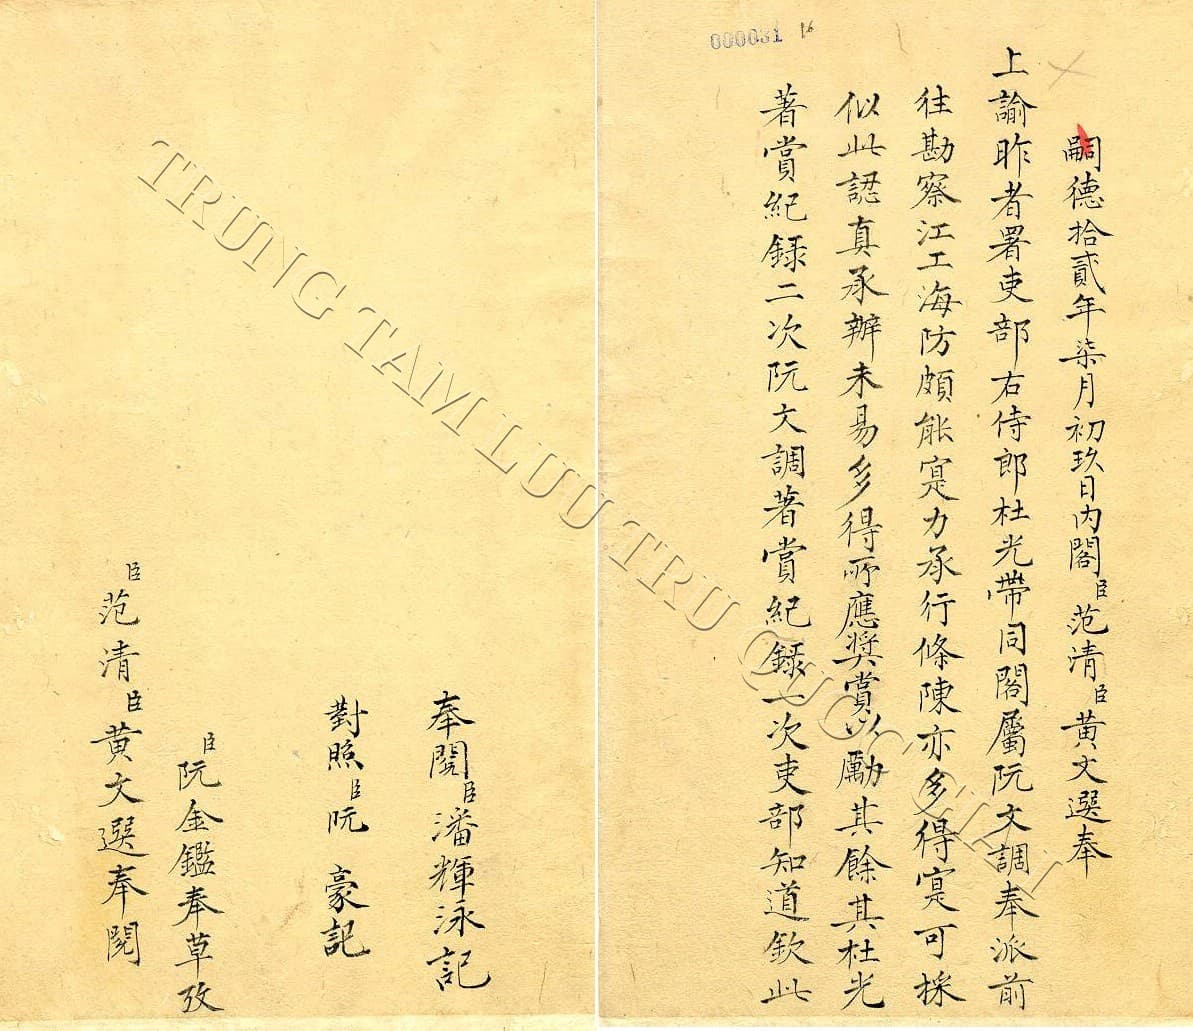 000031 16
嗣德拾貳年柒月初玖日內閣臣范清臣黄文選奉
上諭昨者署吏部右侍郎杜光帶同閣屬阮文調奉派前
往勘察江工海防頗能寔力承行條陳亦多得寔可採
似此認真承辦未易多得所應奬賞以勵其餘其杜光
著賞紀錄二次阮文調著賞紀錄一次吏部知道欽此
奉閱臣潘輝泳記
對照臣阮豪記
臣阮金鑑奉草攷
臣范清臣黄文選奉閱
TRUNG TAM LUU TRU QUOC GIA I